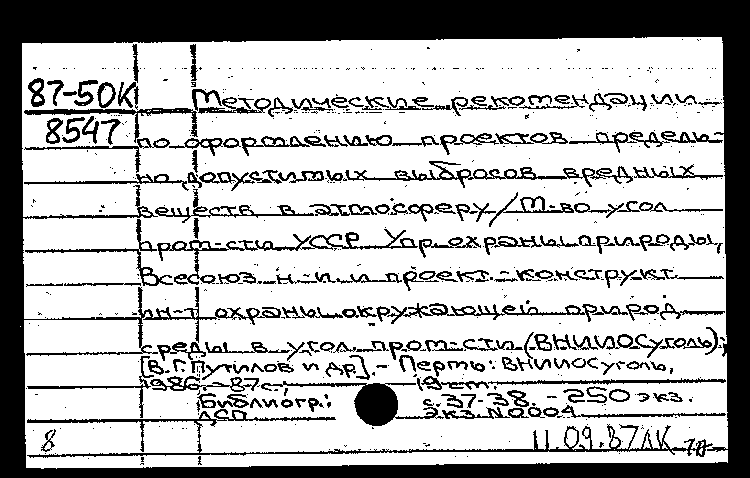 87-50К Методические рекомендации
8547 по оформлению проектов предель-
но допустимых выбросов вредных
веществ в атмосферу/М-во угол.
пром-сти УССР. Упр. охраны природы,
Всесоюз. н.-и. и проект.-конструкт.
ин-т охраны окружающей природ.
среды в угол. пром-сти (ВНИИОСуголь);
[В.Г.Путилов и др].- Пермь: ВНИИОСуголь,
1986.-87с.;
Библиогр.: с.37-38. - 250 экз.
ДСП Экз. N0004
8 11.09.87 ЛК